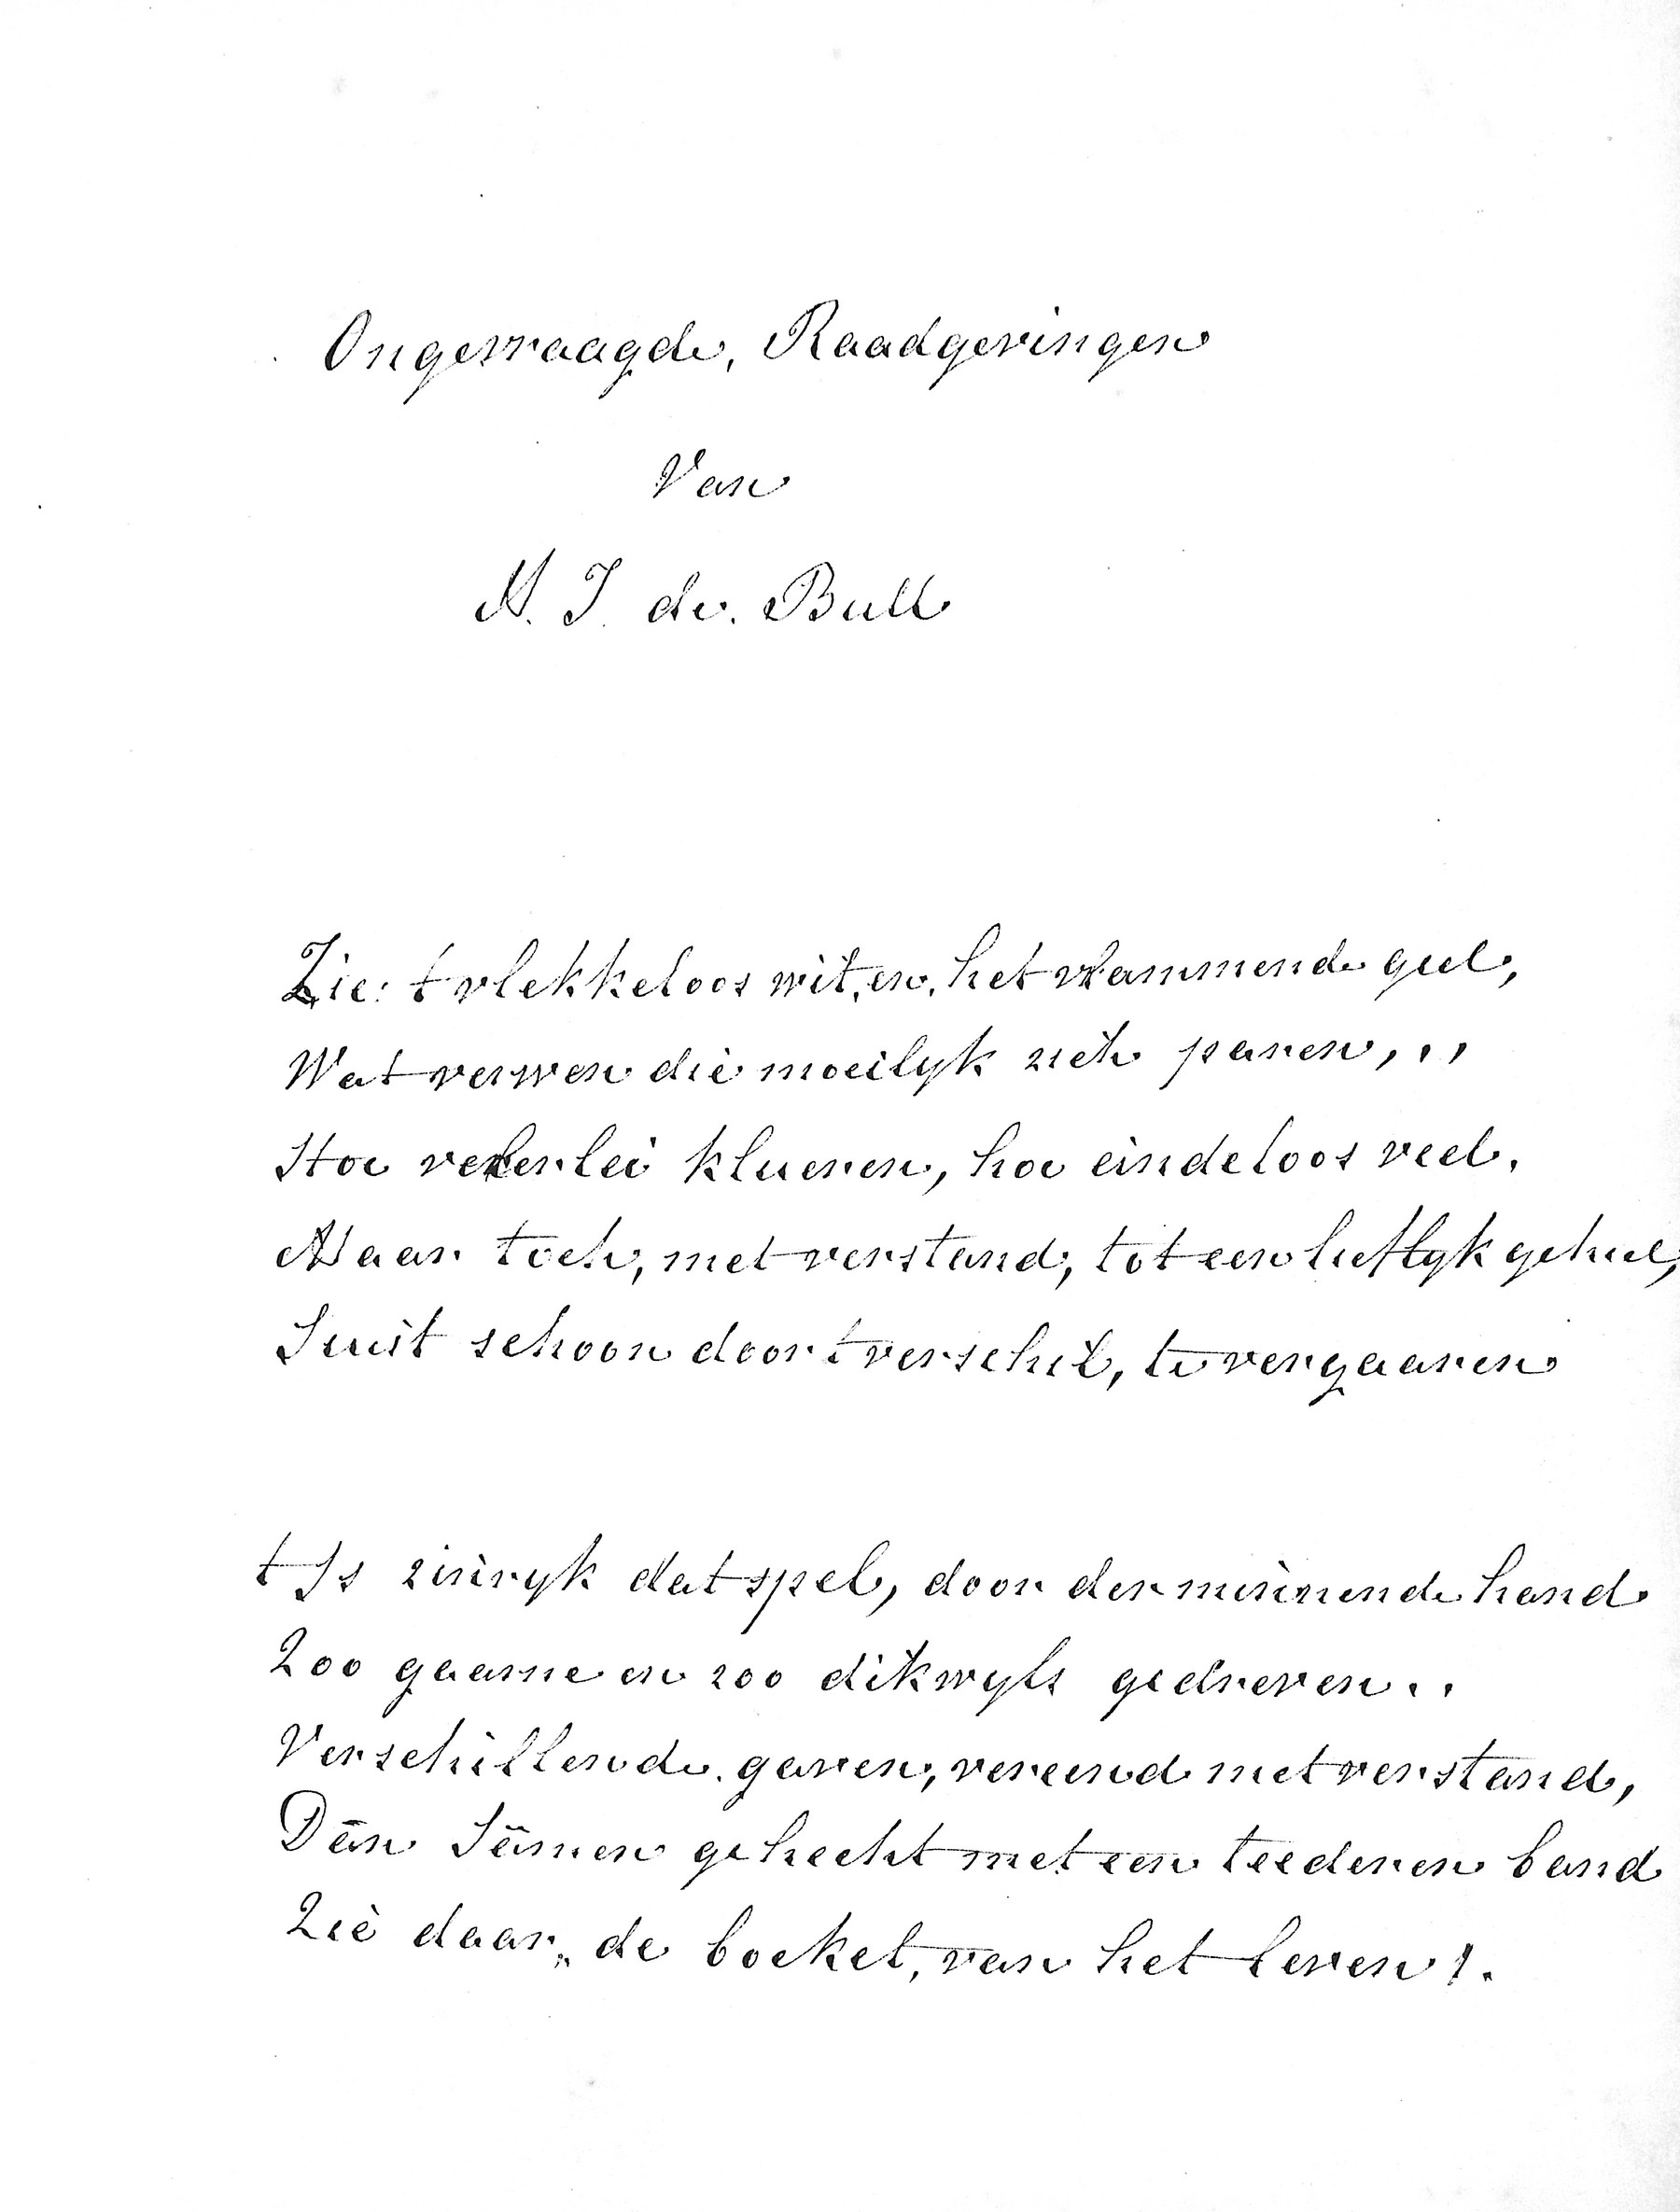 Ongevraagde, Raadgevingen
Van
A. J. de. Bull
Zie: t vlekkeloos wit, en, het vlammende geel,
Wat verwen die moeilyk zich paren,..
Hoe velerlei klueren, hoe eindeloos veel,
Maar toch, met verstand, tot een lieflyk geheel,
Juist schoon door t verschil, te vergaaren
t Is zinryk dat spel, door der minnende hand
Zoo gaarne en zoo dikwyls gedreven..
Verschillende gaven, vereend met verstand,
Dan Samen gehecht met een teederen band
Zie daar„ de boeket, van het leven!.